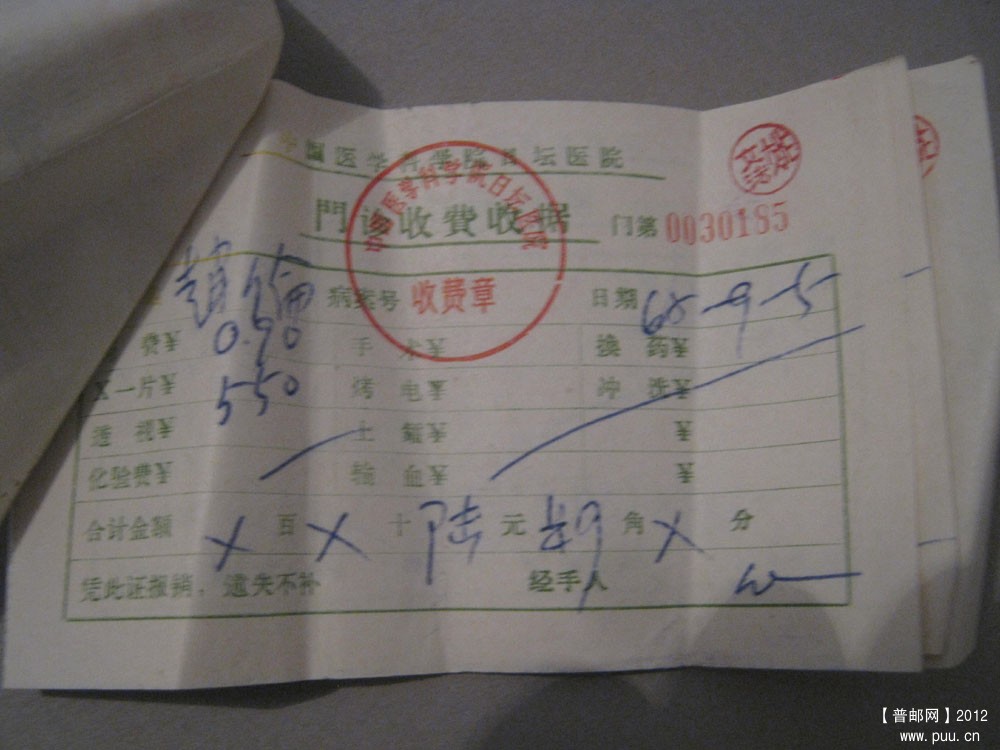 中国医学科学院日坛医院
門诊收费收据 门第 0030185
中国医学科学院日坛医院
收费章
赵 病案号 日期 68-9-5
费¥ 0.90 手术¥ 换药¥
X一片¥ 5.50 烤电¥ 冲洗¥
透视¥ 土鳖¥ ¥
化验费¥ 输血¥ ¥
合计金额 X 百 X 十 陆 元 角 X 分
凭此证报销，遗失不补 经手人
【普邮网】2012
www.puu.cn